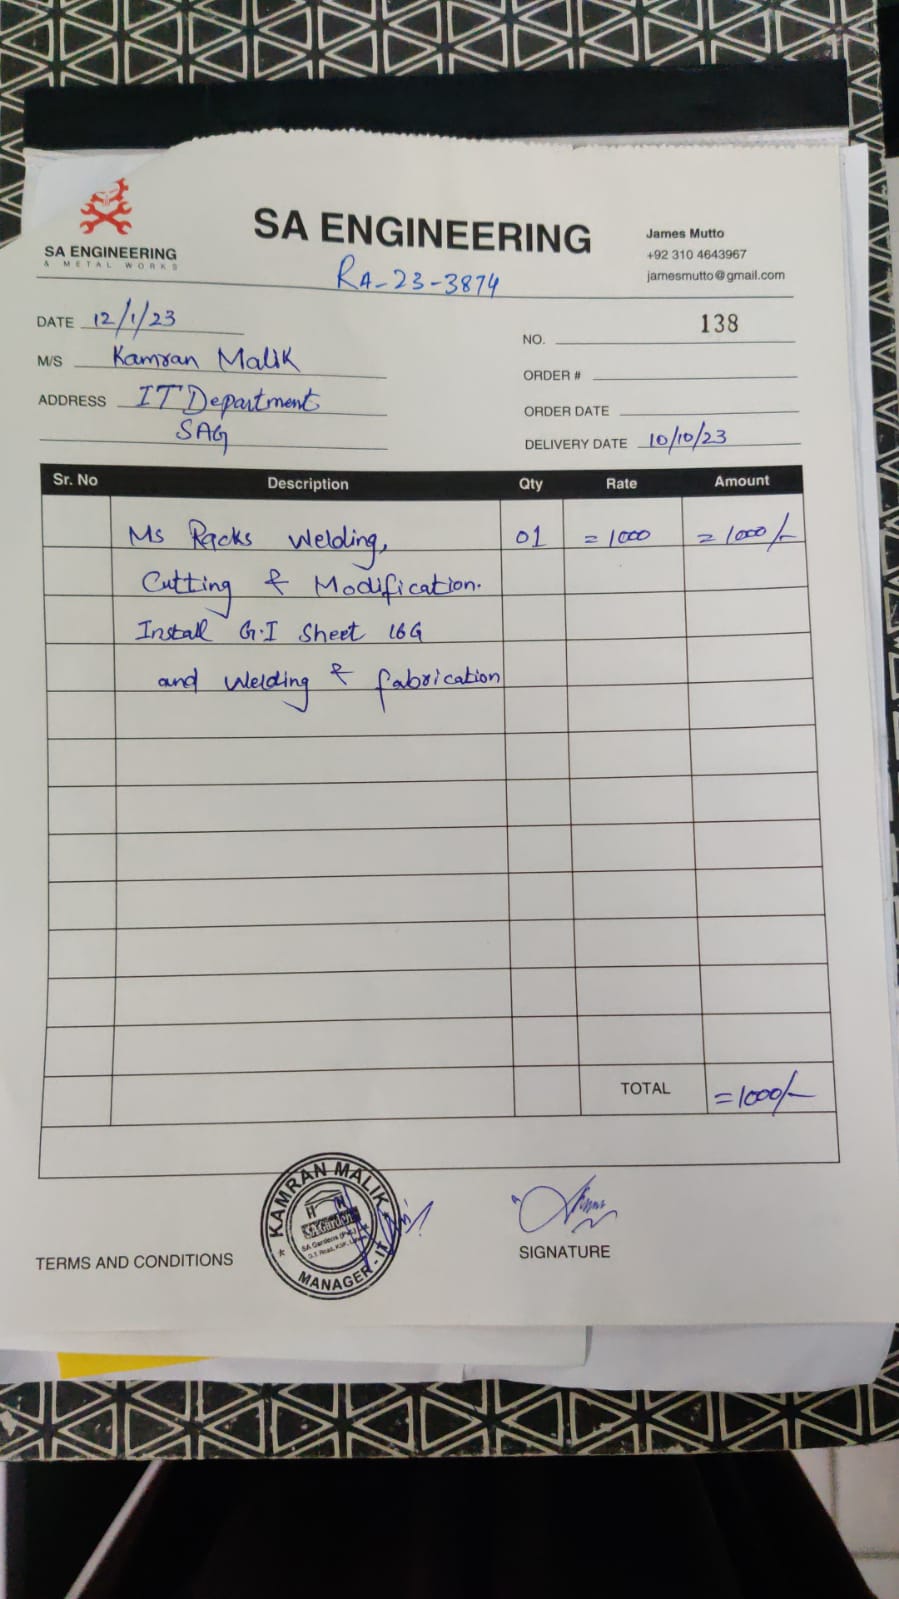 SA ENGINEERING
& METAL WORKS
SA ENGINEERING
RA-23-3874
James Mutto
+92 310 4643967
jamesmutto@gmail.com
DATE 12/1/23
M/S Kamran Malik
ADDRESS IT Department
SAG
NO. 138
ORDER #
ORDER DATE
DELIVERY DATE 10/10/23
Sr. No Description Qty Rate Amount
Ms Racks Welding, 01 = 1000 = 1000/-
Cutting & Modification.
Install G.I Sheet 16G
and Welding & fabrication
TOTAL = 1000/-
KAMRAN MALIK
SA Garden
SA Gardens (Pvt.) Ltd.
MANAGER - IT
TERMS AND CONDITIONS
SIGNATURE